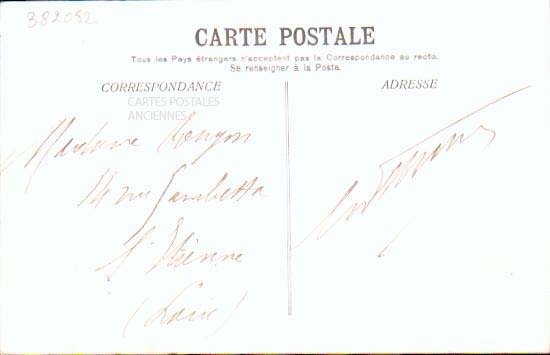 382052
CARTE POSTALE
Tous les Pays étrangers n'acceptent pas la Correspondance au recto.
Se renseigner à la Poste.
CORRESPONDANCE
ADRESSE
CARTES POSTALES
ANCIENNES
Madame
14 rue Gambetta
St Etienne
(Loire)